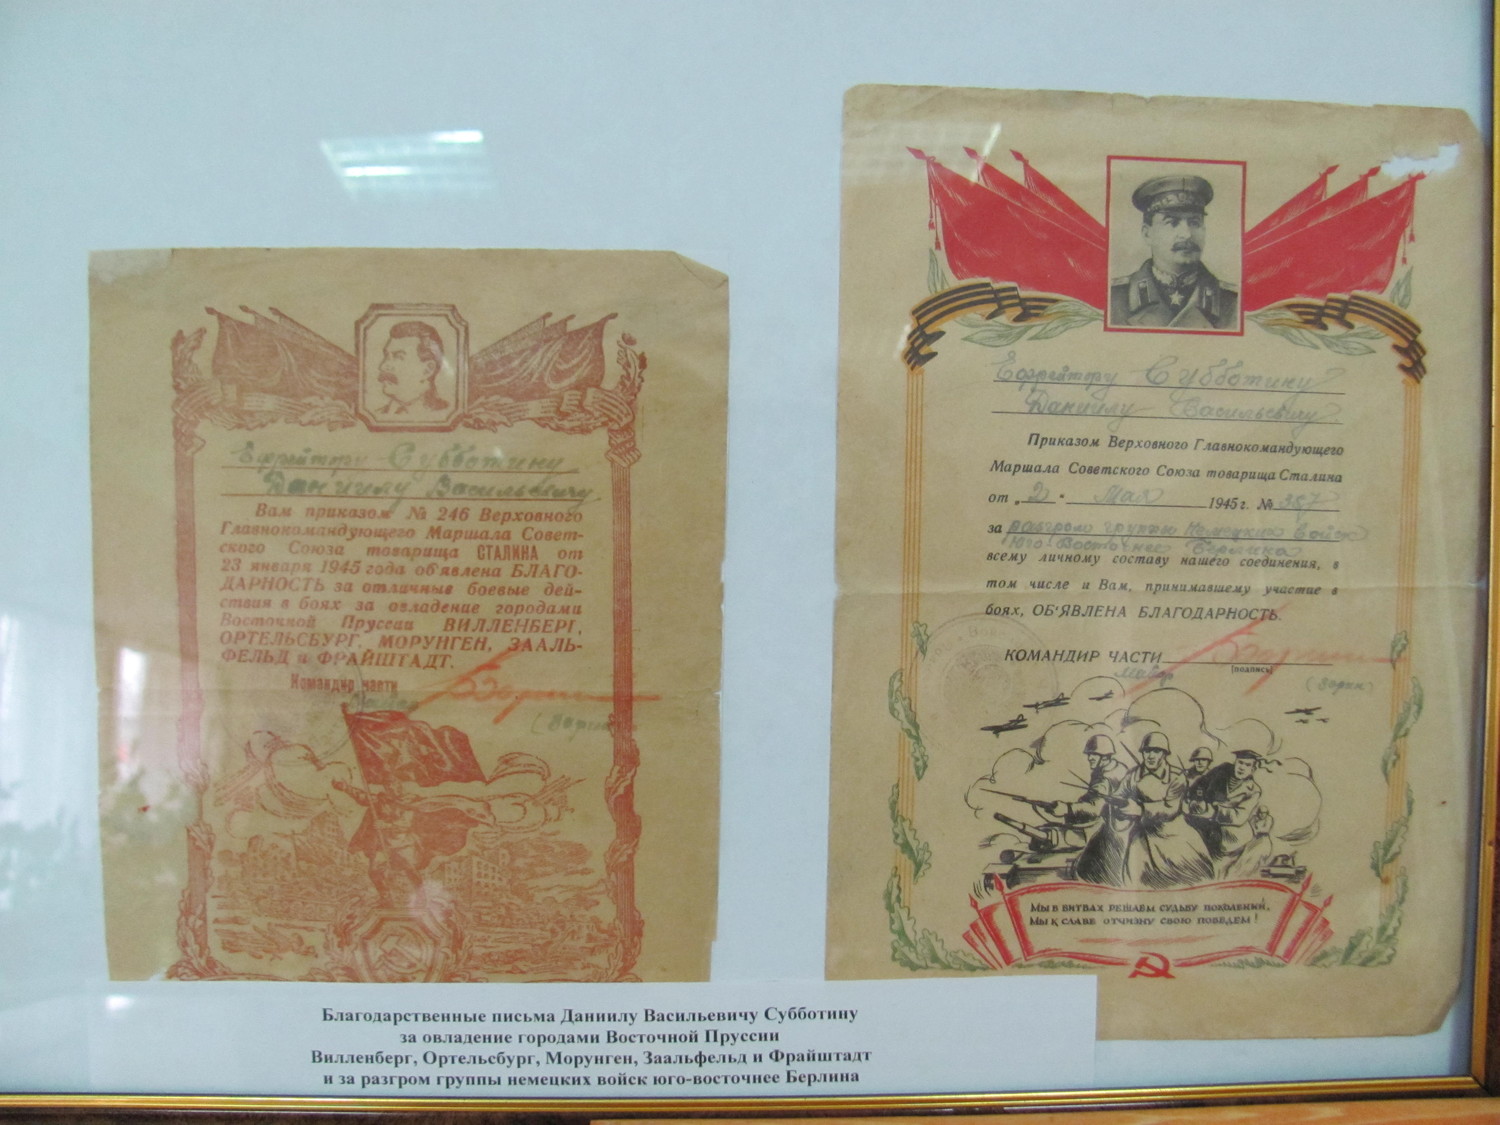 Ефрейтору Субботину
Даниилу Васильевичу.
Вам приказом № 246 Верховного
Главнокомандующего Маршала Совет-
ского Союза товарища СТАЛИНА от
23 января 1945 года об'явлена БЛАГО-
ДАРНОСТЬ за отличные боевые дей-
ствия в боях за овладение городами
Восточной Пруссии ВИЛЛЕНБЕРГ,
ОРТЕЛЬСБУРГ, МОРУНГЕН, ЗААЛЬ-
ФЕЛЬД и ФРАЙШТАДТ.
Командир части
Майор
Ефрейтору Субботину
Даниилу Васильевичу.
Приказом Верховного Главнокомандующего
Маршала Советского Союза товарища Сталина
от „2" Мая 1945 г. № 357
за разгром группы немецких войск
юго-восточнее Берлина
всему личному составу нашего соединения, в
том числе и Вам, принимавшему участие в
боях, ОБ'ЯВЛЕНА БЛАГОДАРНОСТЬ.
КОМАНДИР ЧАСТИ
Майор (подпись)
(Зорин)
МЫ В БИТВАХ РЕШАЕМ СУДЬБУ ПОКОЛЕНИЙ,
МЫ К СЛАВЕ ОТЧИЗНУ СВОЮ ПОВЕДЕМ!
Благодарственные письма Даниилу Васильевичу Субботину
за овладение городами Восточной Пруссии
Вилленберг, Ортельсбург, Морунген, Заальфельд и Фрайштадт
и за разгром группы немецких войск юго-восточнее Берлина